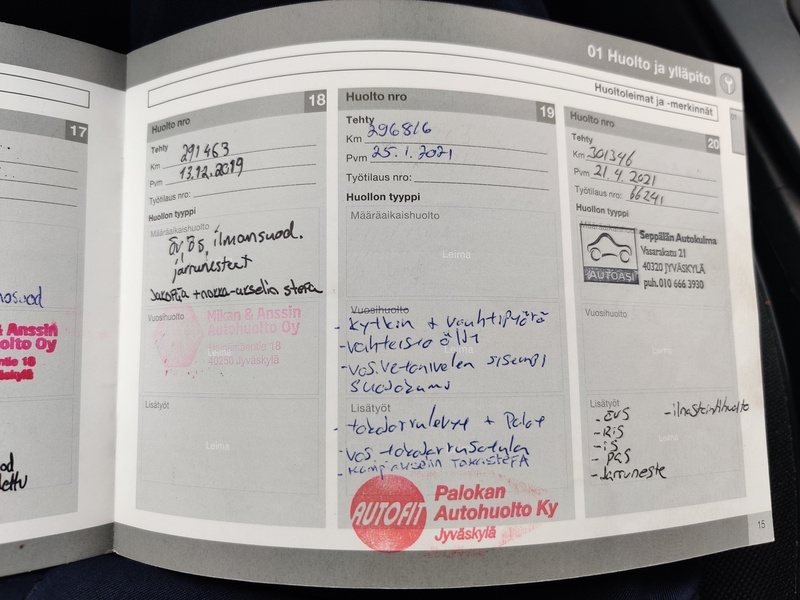 01 Huolto ja ylläpito
Huoltoleimat ja -merkinnät
01
17
& Anssin
Oy
Huolto nro 18
Tehty
Km 291463
Pvm 13.12.2019
Työtilaus nro:
Huollon tyyppi
Määräaikaishuolto
öv, ös, ilmansuod.
jarrunesteet
Jakopää + nokka-akselin stefa
Vuosihuolto
Mikan & Anssin
Autohuolto Oy
40250 Jyväskylä
Leima
Lisätyöt
Leima
Huolto nro 19
Tehty
Km 296816
Pvm 25.1.2021
Työtilaus nro:
Huollon tyyppi
Määräaikaishuolto
Leima
Vuosihuolto
- kytkin + vauhtipyörä
- vaihteisto öljy
Leima
- vas. vetonivelen sisempi
suojakumi
Lisätyöt
- takajarrulevyt + palat
- vas. takajarrusatula
Leima
- kampiakselin takastefa
AUTOFIT
Palokan
Autohuolto Ky
Jyväskylä
Huolto nro 20
Tehty
Km 301346
Pvm 21.4.2021
Työtilaus nro: 66241
Huollon tyyppi
AUTOASI
Seppälän Autokulma
Vasarakatu 21
40320 JYVÄSKYLÄ
puh. 010 666 3930
Vuosihuolto
Leima
Lisätyöt
- öVS - ilmastointihuolto
- RiS
- iS
- PAS
- Jarruneste
Leima
15